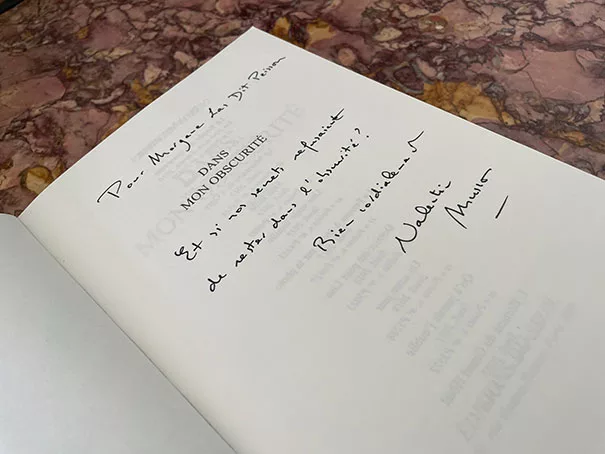 Pour Morgane Las Dit Peisson
DANS
MON OBSCURITÉ
Et si nos secrets refusaient
de rester dans l'obscurité ?
Bien cordialement
Valentin
Musso